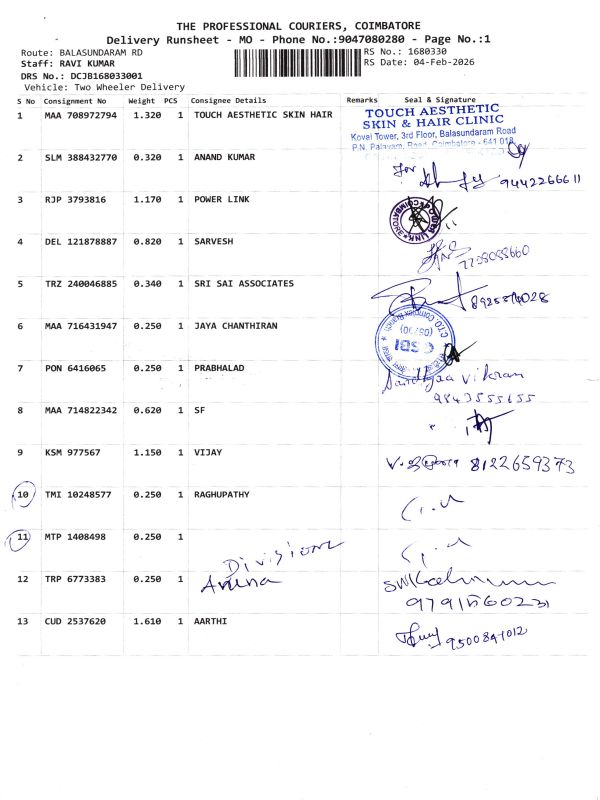 THE PROFESSIONAL COURIERS, COIMBATORE
Delivery Runsheet - MO - Phone No.:9047080280 - Page No.:1
Route: BALASUNDARAM RD
RS No.: 1680330
Staff: RAVI KUMAR
RS Date: 04-Feb-2026
DRS No.: DCJB168033001
Vehicle: Two Wheeler Delivery
S No Consignment No Weight PCS Consignee Details Remarks Seal & Signature
1 MAA 708972794 1.320 1 TOUCH AESTHETIC SKIN HAIR
TOUCH AESTHETIC
SKIN & HAIR CLINIC
Kovai Tower, 3rd Floor, Balasundaram Road
P.N. Palayam, Road, Coimbatore - 641 018
2 SLM 388432770 0.320 1 ANAND KUMAR
For
9442266611
3 RJP 3793816 1.170 1 POWER LINK
4 DEL 121878887 0.820 1 SARVESH
5 TRZ 240046885 0.340 1 SRI SAI ASSOCIATES
6 MAA 716431947 0.250 1 JAYA CHANTHIRAN
SBI
7 PON 6416065 0.250 1 PRABHALAD
Sandhyaa Vikran
9843555655
8 MAA 714822342 0.620 1 SF
9 KSM 977567 1.150 1 VIJAY
8122659373
10 TMI 10248577 0.250 1 RAGHUPATHY
11 MTP 1408498 0.250 1
Divisional
12 TRP 6773383 0.250 1 Aruna
13 CUD 2537620 1.610 1 AARTHI
9500841012